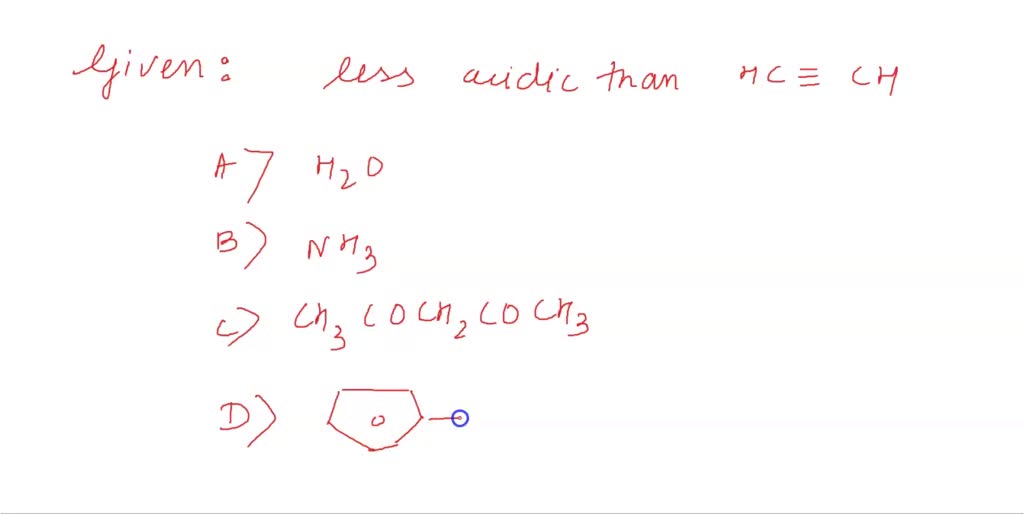 Given: less acidic than HC ≡ CH
A) H2O
B) NH3
C) CH3COCH2COCH3
D)